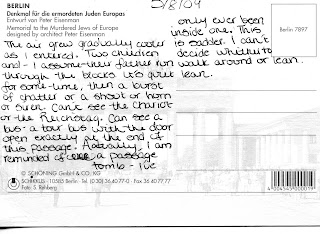 BERLIN
Denkmal für die ermordeten Juden Europas
Entwurf von Peter Eisenman
Memorial to the Murdered Jews of Europe
designed by architect Peter Eisenman
5/8/09
The air grew gradually cooler
as I entered. Two children
and - I assume - their father run
through the blocks. It's quiet
for some time, then a burst
of chatter or a shout or horn
or siren. Can't see the Chariot
or the Reichstag. Can see a
bus - a tour bus with the door
open exactly at the end of
this passage. Actually, I am
reminded of a passage
tomb - I've
only ever been
inside one. This
is sadder. I can't
decide whether to
walk around or lean.
Berlin 7897
© SCHÖNING GmbH & CO. KG
SCHIKKUS - 10585 Berlin · Tel. (0 30) 36 40 77-0 · Fax 36 40 77 77
Foto: S. Rehberg